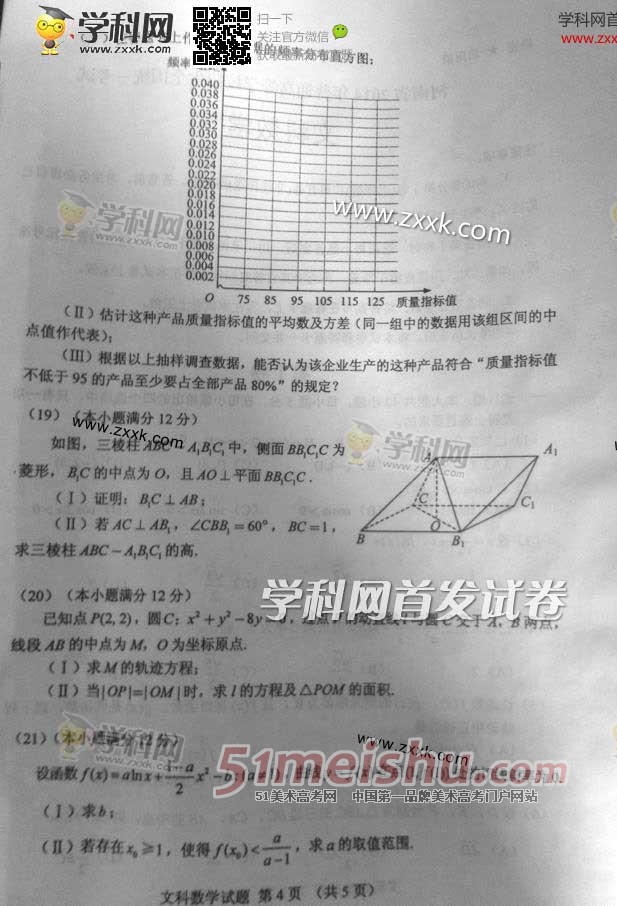 学科网
www.zxxk.com
扫一下
关注官方微信
学科网首
www.zx
频率分布直方图:
0.040
0.038
0.036
0.034
0.032
0.030
0.028
0.026
0.024
0.022
0.020
0.018
0.016
0.014
0.012
0.010
0.008
0.006
0.004
0.002
O 75 85 95 105 115 125 质量指标值
学科网
www.zxxk.com
www.zxxk.com
(Ⅱ)估计这种产品质量指标值的平均数及方差(同一组中的数据用该组区间的中
点值作代表);
(Ⅲ)根据以上抽样调查数据,能否认为该企业生产的这种产品符合“质量指标值
不低于 95 的产品至少要占全部产品 80%”的规定?
(19)(本小题满分 12 分)
www.zxxk.com
如图,三棱柱 ABC－A₁B₁C₁ 中,侧面 BB₁C₁C 为
菱形,B₁C 的中点为 O,且 AO⊥平面 BB₁C₁C.
(Ⅰ)证明:B₁C⊥AB;
(Ⅱ)若 AC⊥AB₁,∠CBB₁=60°,BC=1,
求三棱柱 ABC－A₁B₁C₁ 的高.
学科网
www.zxxk.com
A A₁
C C₁
O
B B₁
学科网首发试卷
(20)(本小题满分 12 分)
已知点 P(2,2),圆 C:x²+y²-8y 交于 A,B 两点,
线段 AB 的中点为 M,O 为坐标原点.
(Ⅰ)求 M 的轨迹方程;
(Ⅱ)当|OP|=|OM|时,求 l 的方程及△POM 的面积.
学科网
www.zxxk.com
www.zxxk.com
(21)(本小题满分 12 分)
51meishu.com
设函数 f(x)=a ln x+ a/2 x²-b
51美术高考网 中国第一品牌美术高考门户网站
(Ⅰ)求 b;
学科网首发试卷
(Ⅱ)若存在 x₀≥1,使得 f(x₀)<a/(a-1),求 a 的取值范围.
文科数学试题 第 4 页 (共 5 页)